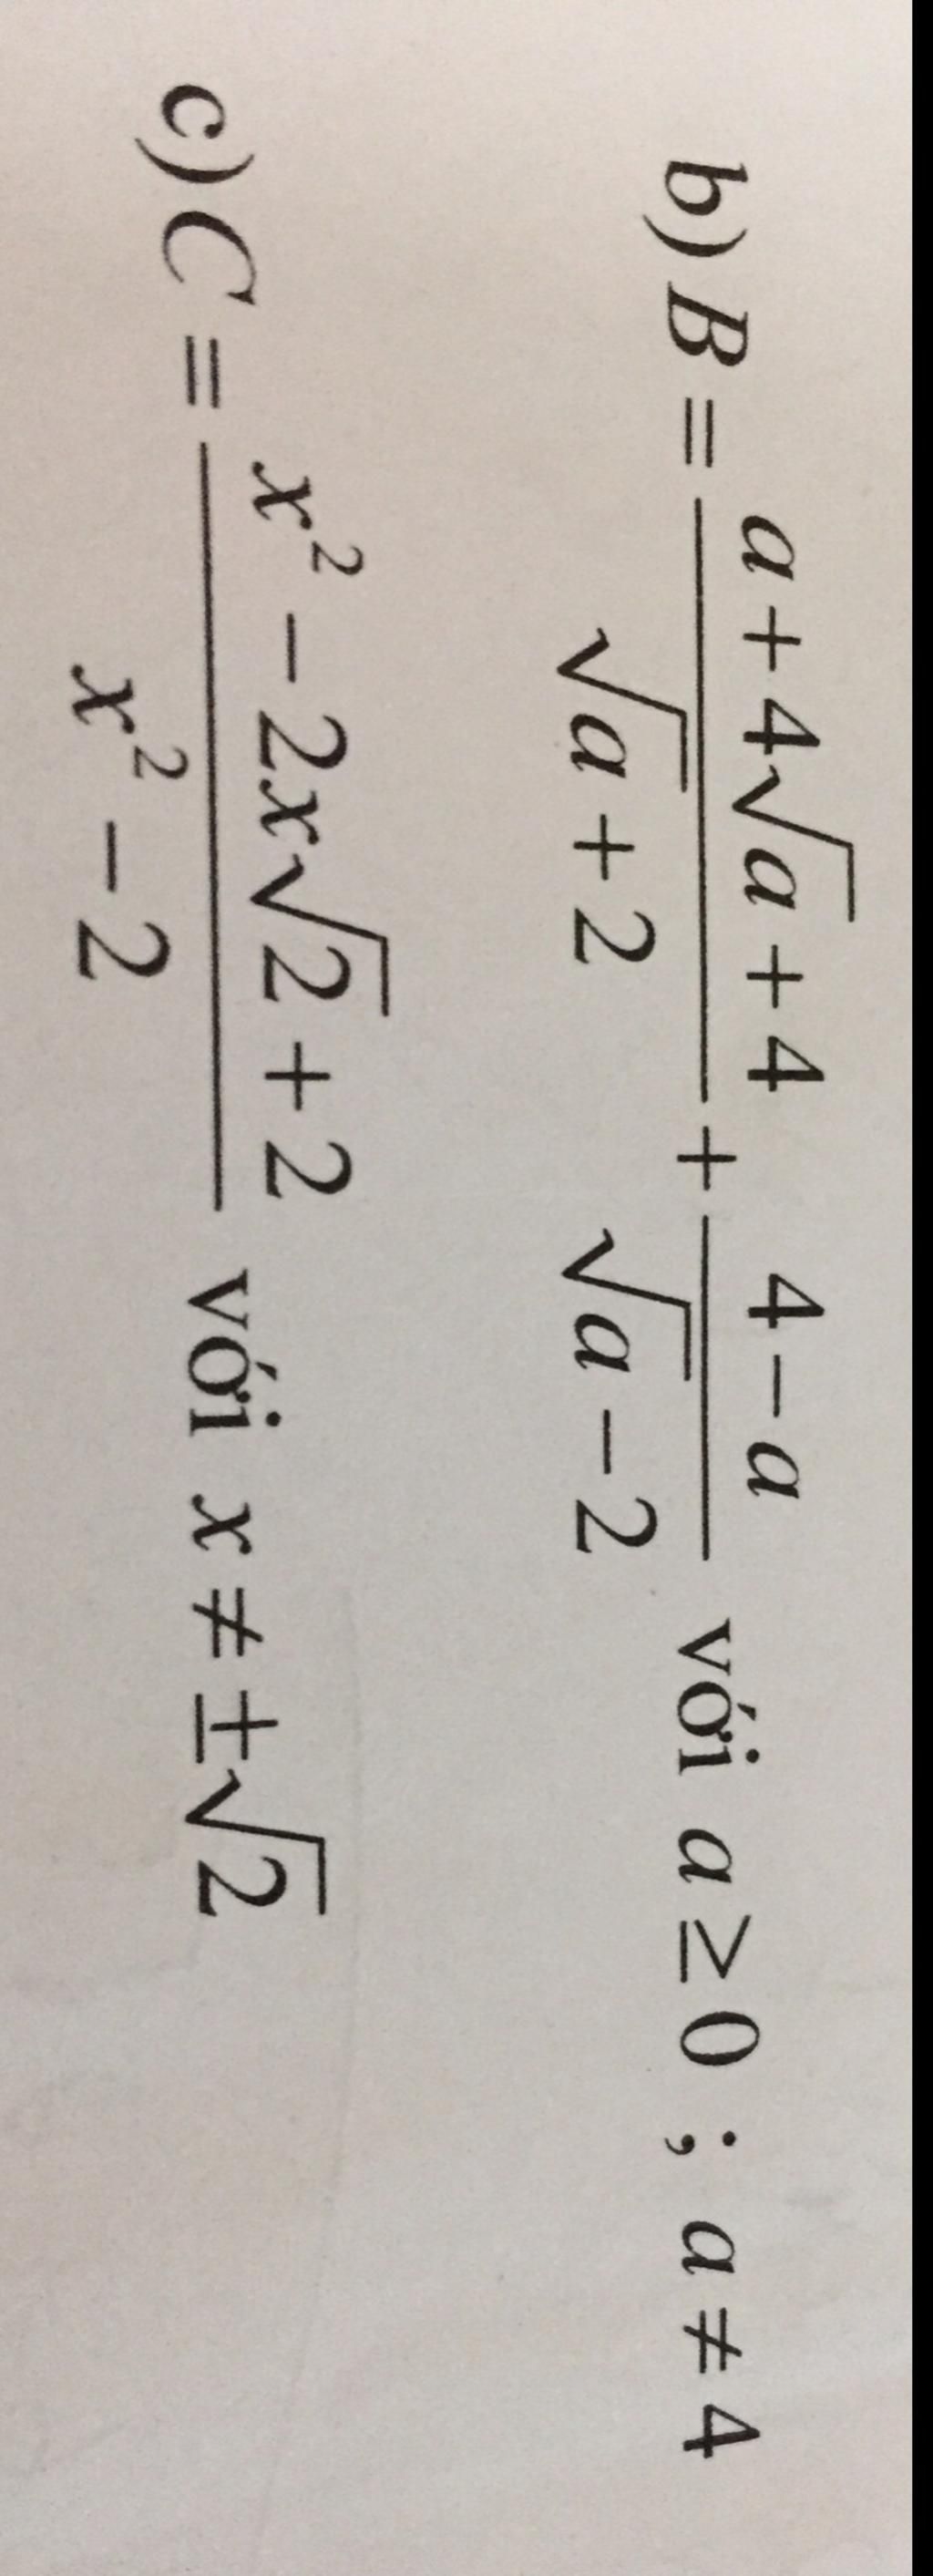 b) B = \frac{a + 4\sqrt{a} + 4}{\sqrt{a} + 2} + \frac{4 - a}{\sqrt{a} - 2} với a ≥ 0 ; a ≠ 4
c) C = \frac{x^2 - 2x\sqrt{2} + 2}{x^2 - 2} với x ≠ ±\sqrt{2}